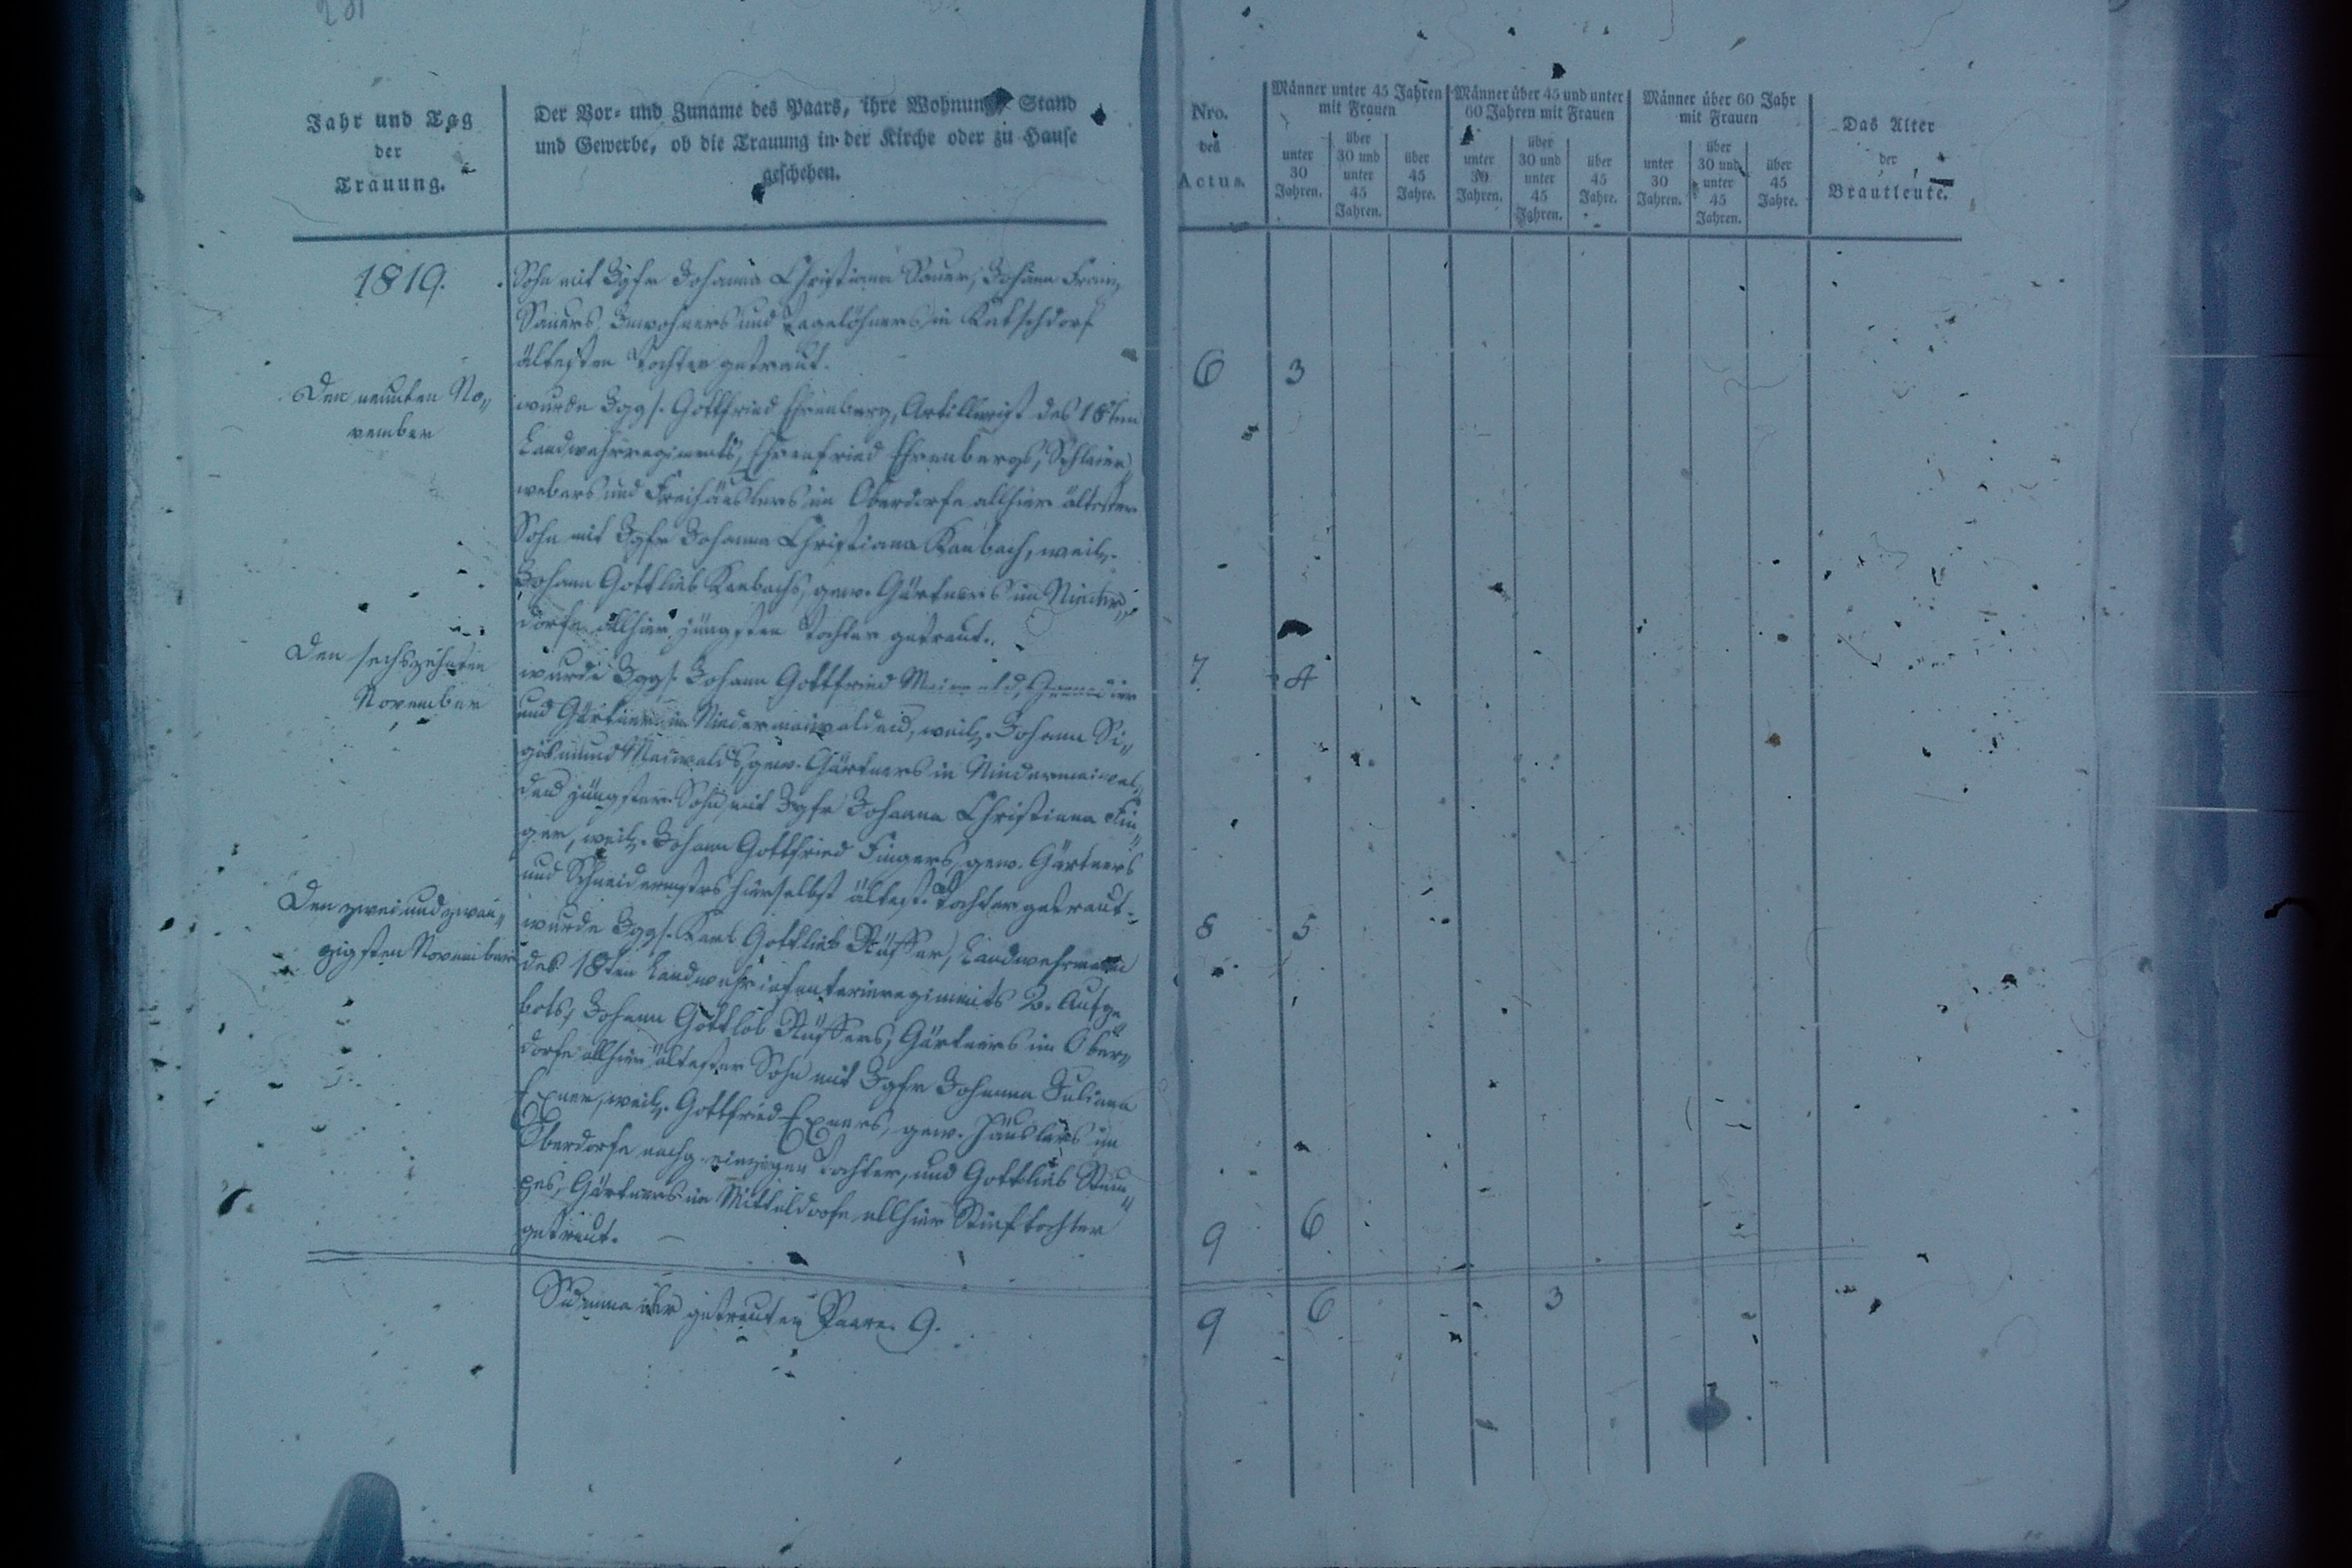 Jahr und Tag
der
Trauung.
Der Vor- und Zuname des Paars, ihre Wohnung, Stand
und Gewerbe, ob die Trauung in der Kirche oder zu Hause
geschehen.
1819.
Sohn mit Igfr Johanna Christiana Sauer, Johann Franz
Sauers, Inwohners und Tagelöhners in Ketschdorf
ältesten Tochter getraut.
Den neunten No„
vember
wurde Iggs. Gottfried Ehrenberg, Artillerist des 18ten
Landwehrregiments, Ehrenfried Ehrenbergs, Schleier„
webers und Freihäuslers im Oberdorfe allhier ältester
Sohn mit Igfr Johanna Christiana Raubach, weil.
Johann Gottlieb Raubachs, gew. Gärtners im Nieder„
dorfe allhier jüngsten Tochter getraut.
Den sechszehnten
November
wurde Iggs. Johann Gottfried Maiwald,
und Gärtner in Niedermaiwaldau, weil. Johann Si„
gismund Maiwalds, gew. Gärtners in Niedermaiwal„
dau jüngster Sohn mit Igfr Johanna Christiana Fin„
ger, weil. Johann Gottfried Fingers, gew. Gärtners
und Schneidermstrs hierselbst ältest. Tochter getraut.
Den zwei und zwan„
zigsten November
wurde Iggs. Karl Gottlieb Rüffer, Landwehrmann
des 18ten Landwehrinfanterieregiments 2. Aufge
bots, Johann Gottlob Rüffers, Gärtners im Ober„
dorfe allhier ältester Sohn mit Igfr Johanna Juliana
Exner, weil. Gottfried Exners, gew. Häuslers im
Oberdorfe nachg. einzigen Tochter, und Gottlieb
Gärtners im Mitteldorfe allhier Stieftochter
getraut.
Summa der getrauten Paare. 9.
Nro.
des
Actus.
Männer unter 45 Jahren
mit Frauen
unter
30
Jahren.
über
30 und
unter
45
Jahren.
über
45
Jahre.
Männer über 45 und unter
60 Jahren mit Frauen
unter
30
Jahren.
über
30 und
unter
45
Jahren.
über
45
Jahre.
Männer über 60 Jahr
mit Frauen
unter
30
Jahren.
über
30 und
unter
45
Jahren.
über
45
Jahre.
Das Alter
der
Brautleute.
6 3
7 4
8 5
9 6
9 6 3